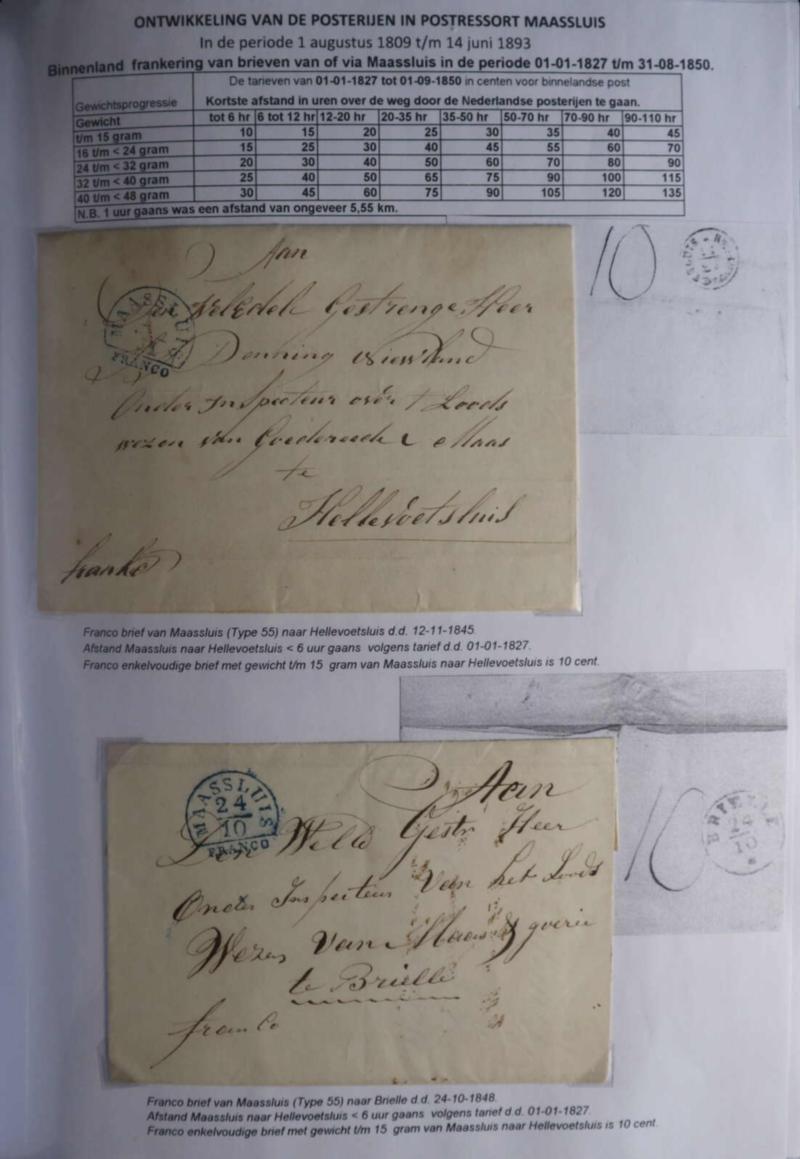 ONTWIKKELING VAN DE POSTERIJEN IN POSTRESSORT MAASSLUIS
In de periode 1 augustus 1809 t/m 14 juni 1893
Binnenland frankering van brieven van of via Maassluis in de periode 01-01-1827 t/m 31-08-1850.
De tarieven van 01-01-1827 tot 01-09-1850 in centen voor binnelandse post
Gewichtsprogressie Kortste afstand in uren over de weg door de Nederlandse posterijen te gaan.
Gewicht tot 6 hr 6 tot 12 hr 12-20 hr 20-35 hr 35-50 hr 50-70 hr 70-90 hr 90-110 hr
t/m 15 gram 10 15 20 25 30 35 40 45
16 t/m < 24 gram 15 25 30 40 45 55 60 70
24 t/m < 32 gram 20 30 40 50 60 70 80 90
32 t/m < 40 gram 25 40 50 65 75 90 100 115
40 t/m < 48 gram 30 45 60 75 90 105 120 135
N.B. 1 uur gaans was een afstand van ongeveer 5,55 km.
10
Aan
MAASSLUIS
FRANCO
Gestrenge Heer
Onder Inspecteur over 't Loods
wezen van Goedereede & Maas
te
Hellevoetsluis
franko
Franco brief van Maassluis (Type 55) naar Hellevoetsluis d.d. 12-11-1845.
Afstand Maassluis naar Hellevoetsluis < 6 uur gaans volgens tarief d.d. 01-01-1827.
Franco enkelvoudige brief met gewicht t/m 15 gram van Maassluis naar Hellevoetsluis is 10 cent.
Aan
MAASSLUIS
24
10
FRANCO
Gestr Heer
Onder Inspecteur Van het Loods
Wezen Van Maas
te Brielle
franco
10
BRIELLE
24
10
Franco brief van Maassluis (Type 55) naar Brielle d.d. 24-10-1848.
Afstand Maassluis naar Hellevoetsluis < 6 uur gaans volgens tarief d.d. 01-01-1827.
Franco enkelvoudige brief met gewicht t/m 15 gram van Maassluis naar Hellevoetsluis is 10 cent.